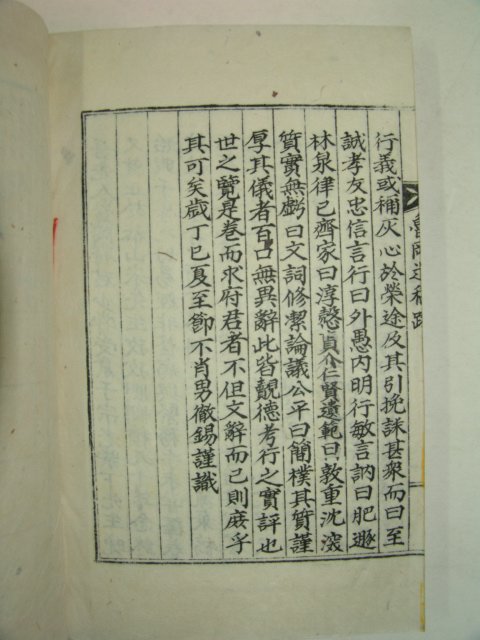 遺稿跋
行義或補灰心於榮途及其引挽誄甚衆而曰至
誠孝友忠信言行曰外愚內明行敏言訥曰肥遯
林泉律己齊家曰淳慤貞介仁賢遺範曰敦重沈深
質實無虧曰文詞修潔論議公平曰簡樸其質謹
厚其儀者百口無異辭此皆覿德考行之實評也
世之覽是卷而求府君者不但文辭而已則庶乎
其可矣歲丁巳夏至節不肖男徹錫謹識